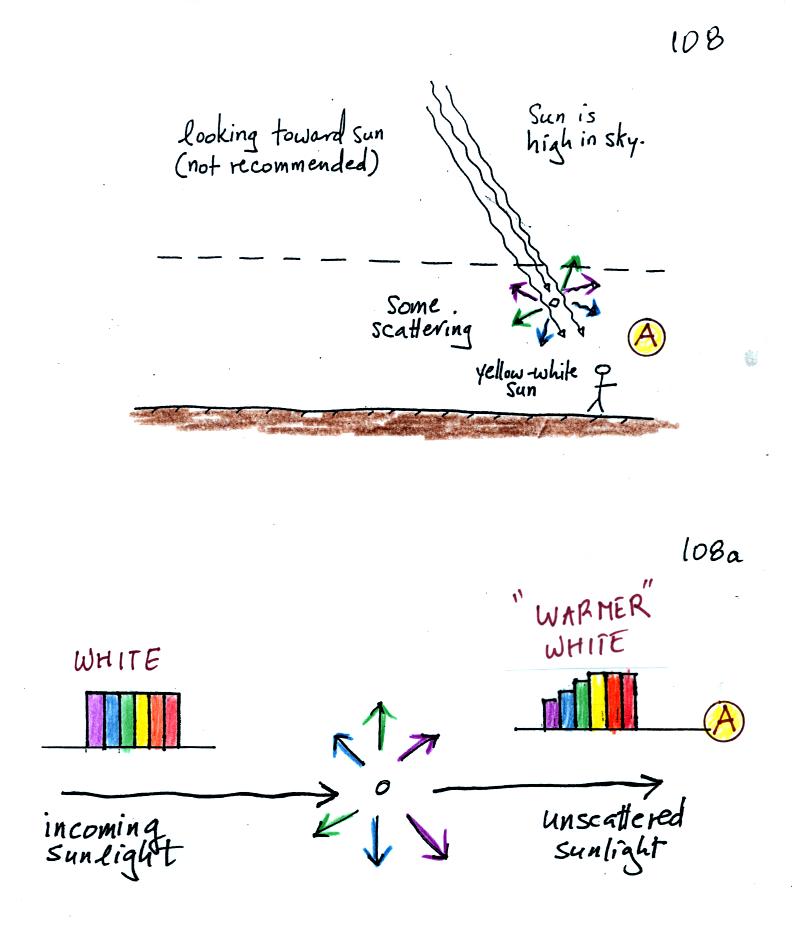 108
looking toward sun
(not recommended)
Sun is
high in sky.
Some
scattering
A
yellow-white
Sun
108a
WHITE
"WARMER"
WHITE
A
incoming
sunlight
unscattered
sunlight